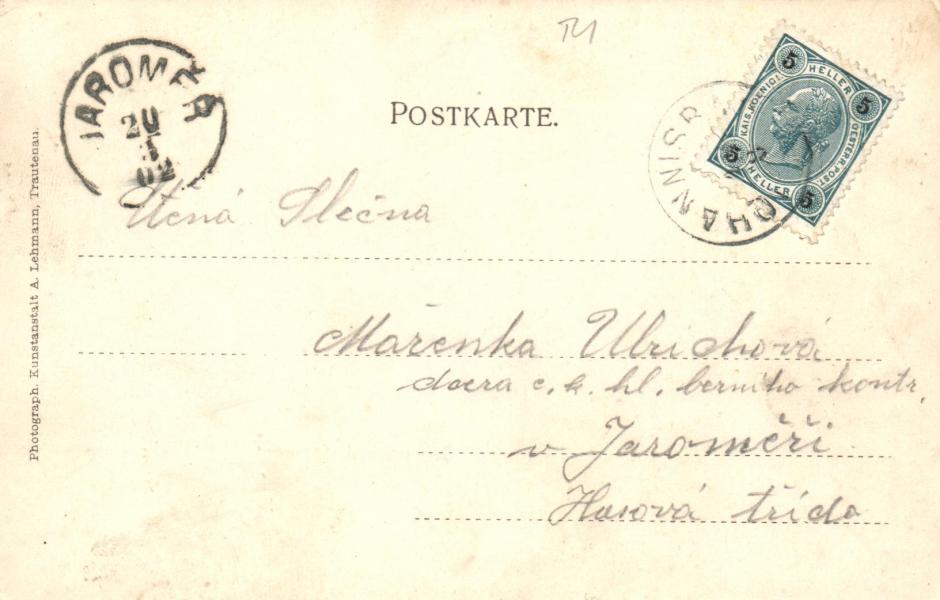 JAROMĚŘ
20
5
02
POSTKARTE.
5 HELLER 5
KAIS. KOENIGL. OESTERR. POST.
5 HELLER 5
Ctená Slečna
Mařenka Ulrichová
dcera c. k. hl. berního kontr.
v Jaroměři
třída
Photograph. Kunstanstalt A. Lehmann, Trautenau.